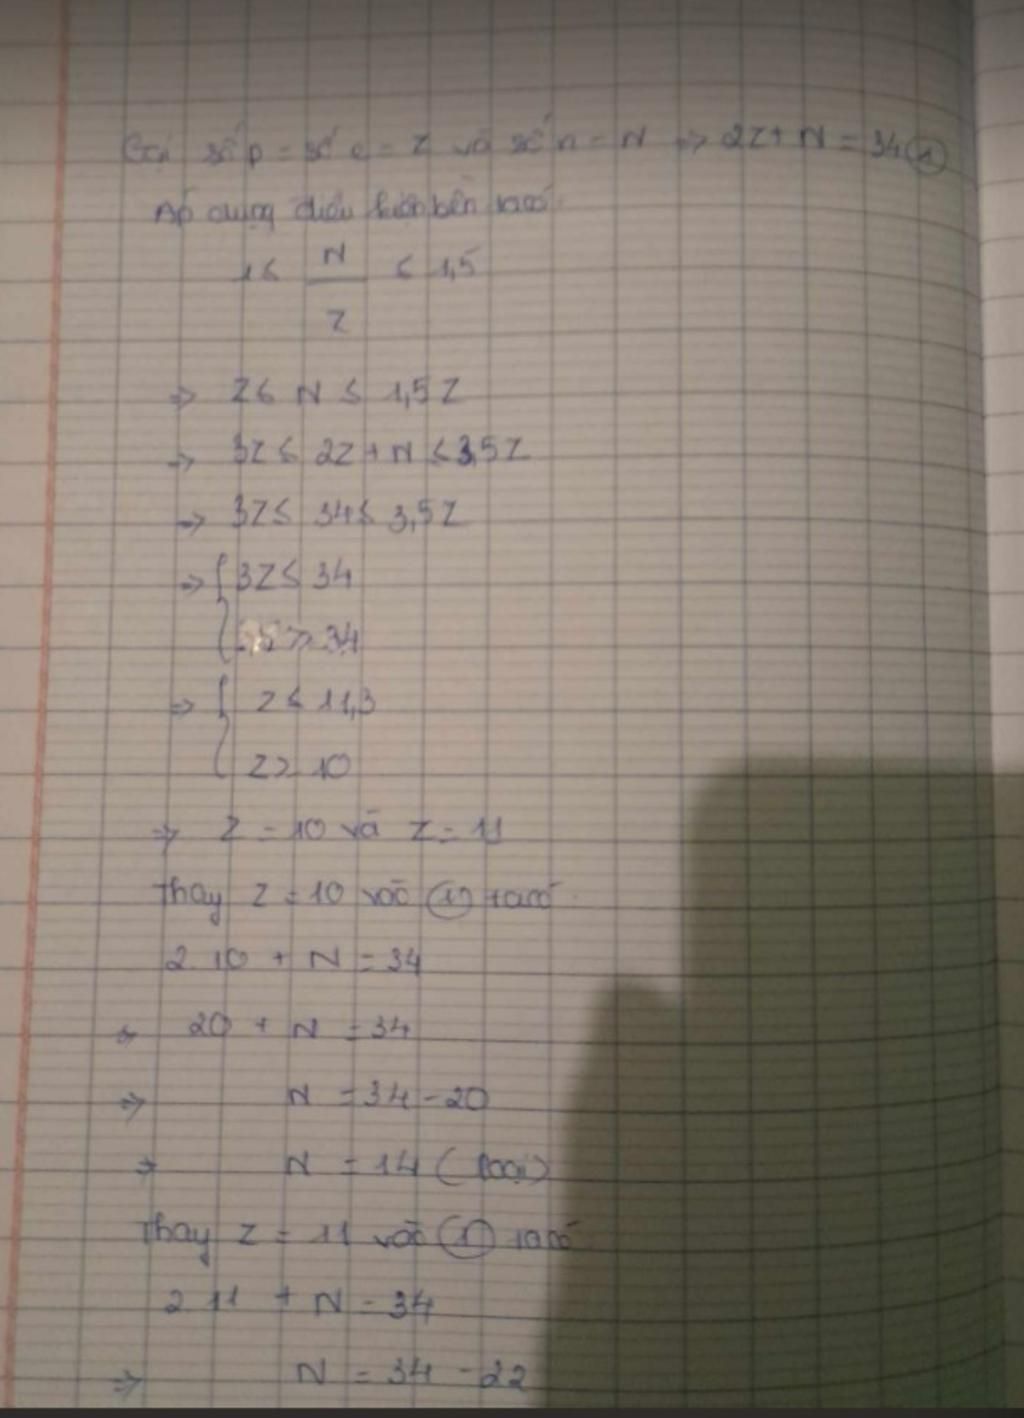 Gọi số p = số e = Z và số n = N => 2Z + N = 34 (1)
Áp dụng điều kiện bền ta có:
1 ≤ N/Z ≤ 1,5
=> Z ≤ N ≤ 1,5Z
=> 3Z ≤ 2Z + N ≤ 3,5Z
=> 3Z ≤ 34 ≤ 3,5Z
=> { 3Z ≤ 34
≥ 34
=> { Z ≤ 11,3
Z ≥ 10
=> Z = 10 và Z = 11
Thay Z = 10 vào (1) ta có:
2.10 + N = 34
=> 20 + N = 34
=> N = 34 - 20
=> N = 14 (loại)
Thay Z = 11 vào (1) ta có
2.11 + N = 34
=> N = 34 - 22